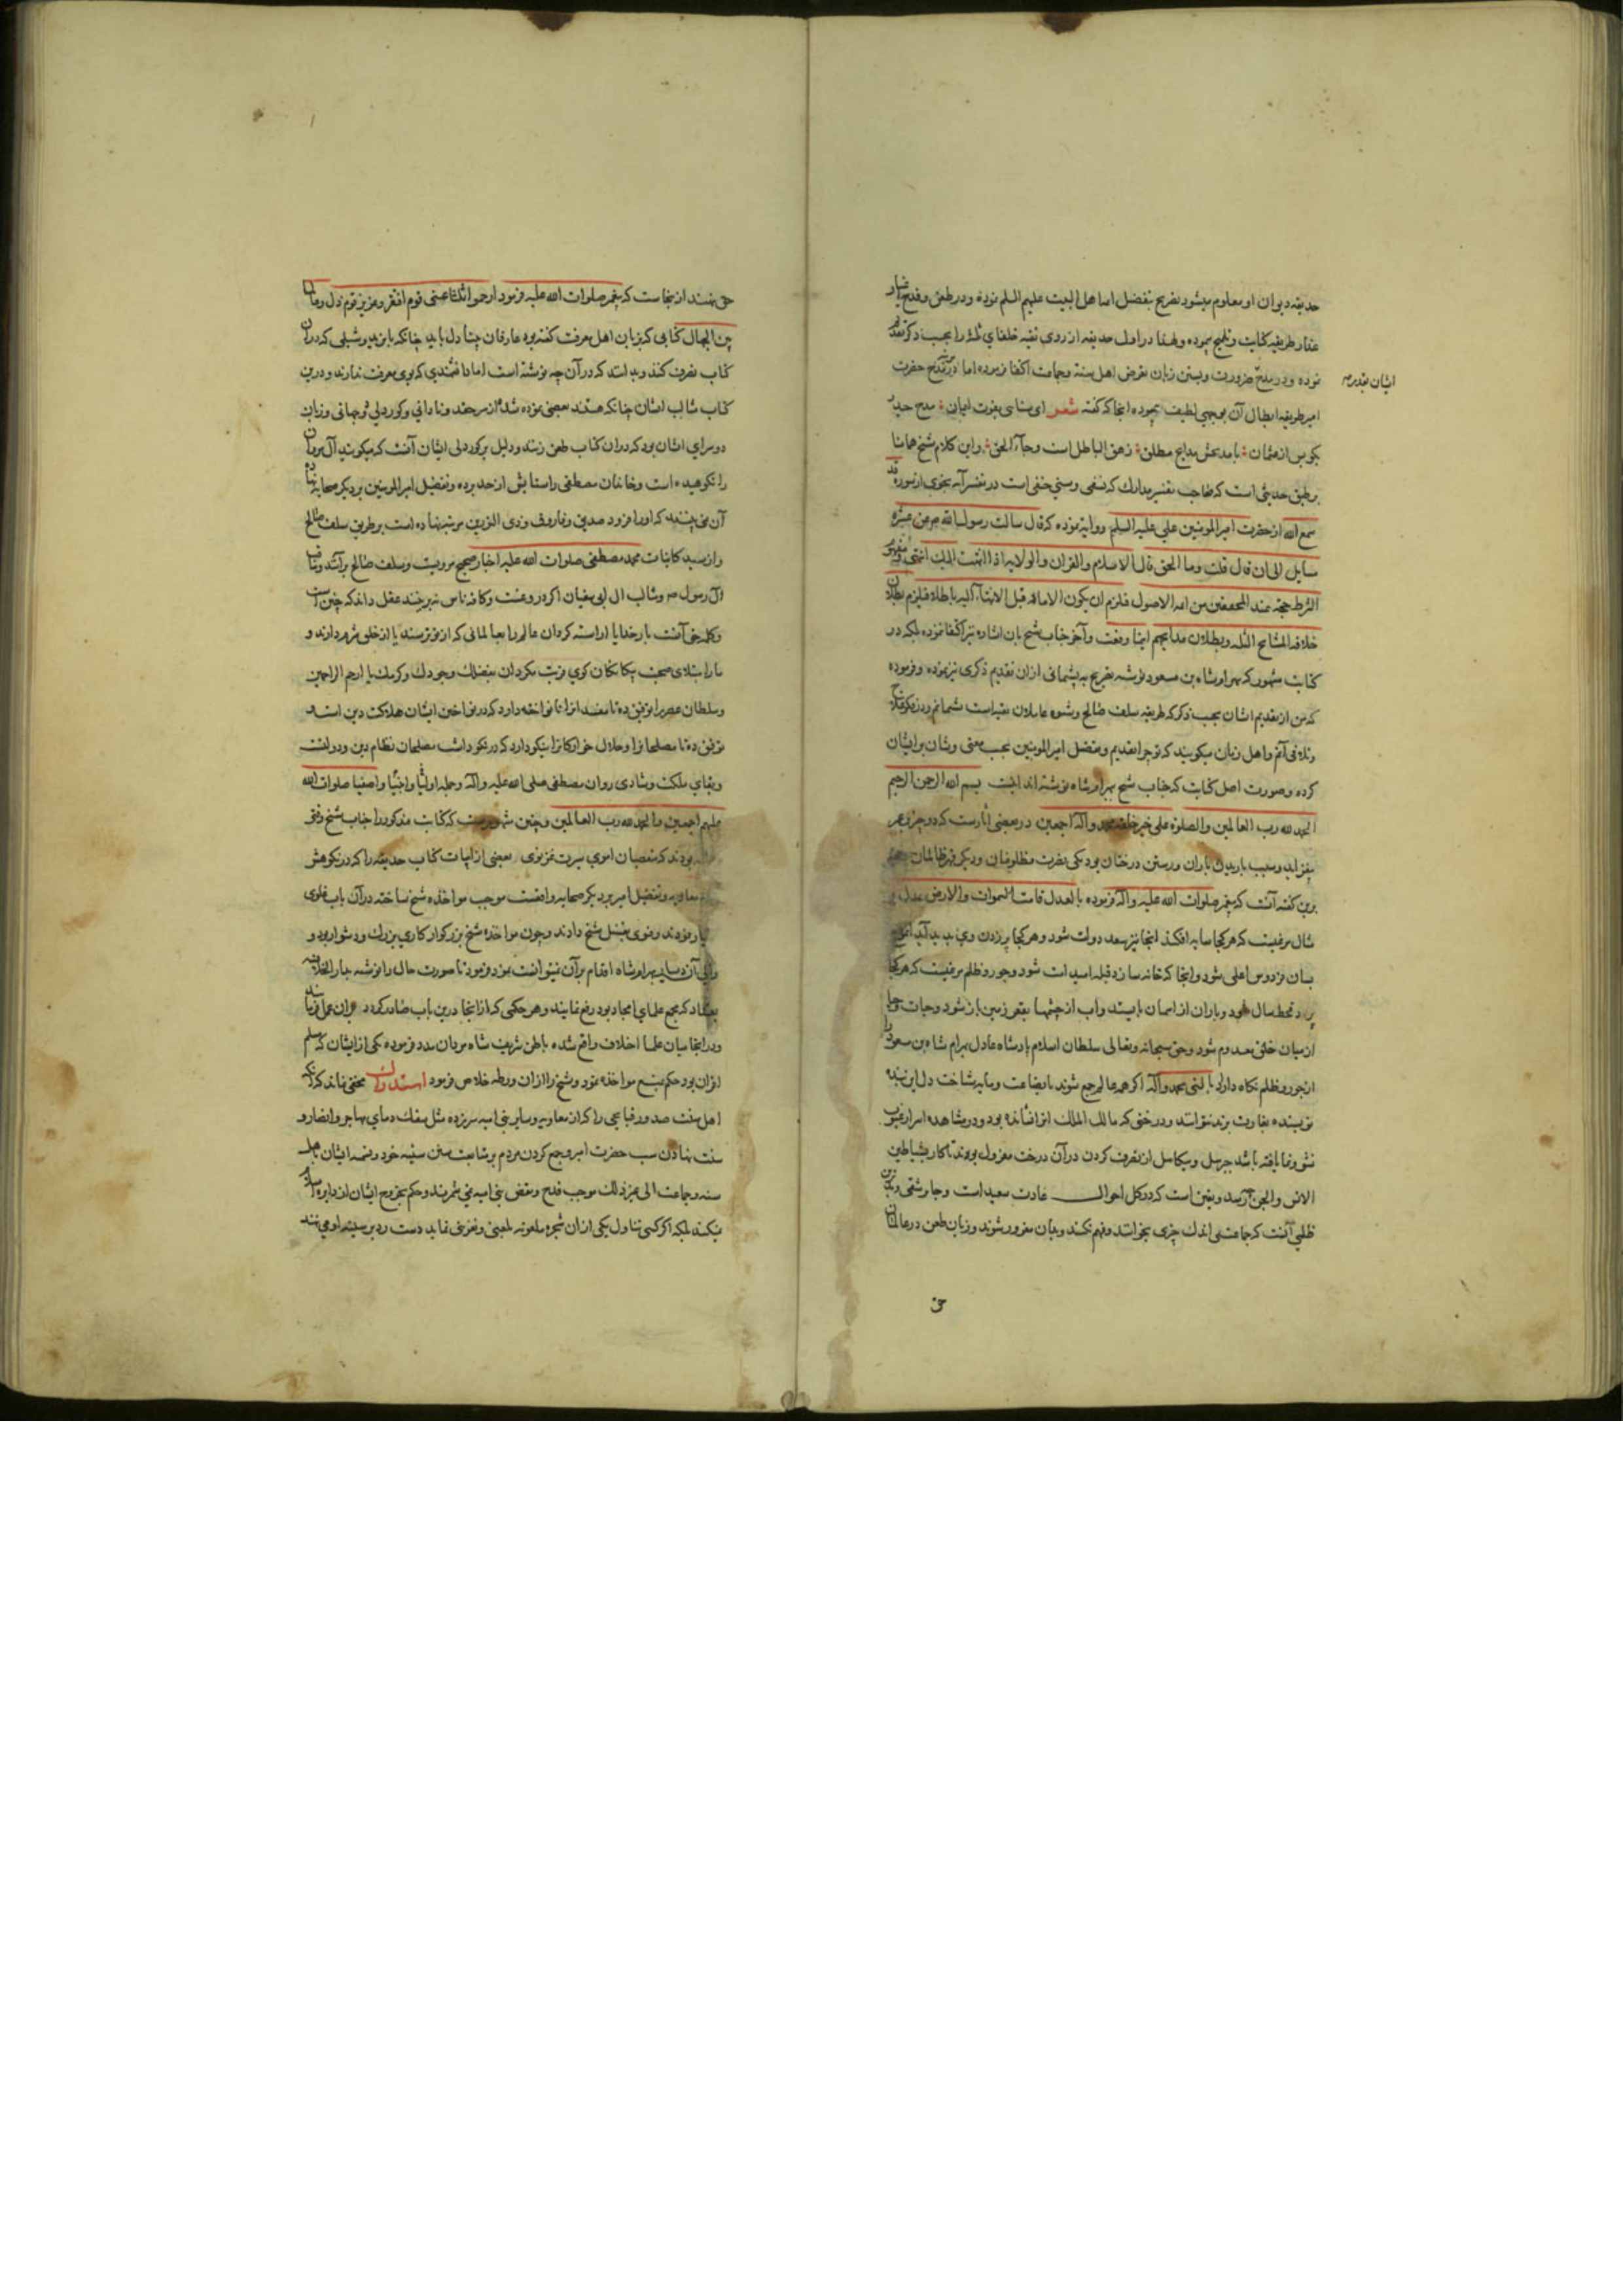 حدیقه دیوان او معلوم میشود تصریح بتفضل اما اهل البیت علیهم السلم نموده و در طعن و قدح
طریقه کنایت و تلمیح نموده و لهذا در اول حدیقه از روی تقیه خلفای ثلثه را بحسب ذکر تقدیم
ایشان تقدیم
نموده و در مدح ضرورت و بستن زبان تعرض اهل سنة و جماعت اکتفا نموده اما در مدح حضرت
امیر طریقه ابطال آن بوجهی لطیف نموده انجا که گفته شعر ای سنایی بقوت ایمان مدح حیدر
بگو پس از عثمان با مدیحش مدایح مطلق زهق الباطل است و جاء الحق و این کلام شیخ همانا
بر طبق حدیثی است که صاحب تفسیر مدارک که نسفی و سنی حنفی است در تفسیر آیه نجوی از سوره قد
سمع الله از حضرت امیر المومنین علی علیه السلم روایة نموده که قال سالت رسول الله ص عن عشرة
مسایل الی ان قال قلت و ما الحق قال الاسلام و القران و الولایه اذا انتهت الیک انتهی و مفهوم
الشرط حجة عند المحققین من ائمه الاصول فلزم ان یکون الامامة قبل الانتهاء الیه باطلا فلزم بطلان
خلافة المشایخ الثلثه و بطلان مدایحهم ایضا و آخر جناب شیخ بان اشاره نیز اکتفا نموده بلکه در
کتابت مشهور که ببهرامشاه بن مسعود نوشته تصریح به پشیمانی از ان تقدیم ذکری نیز نموده و فرموده
که من از تقدیم ایشان بحسب ذکر که طریقه سلف صالح و شیوه عاملان تقیه است پشیمانم و در
تلافی آنم و اهل زمان میگویند که تو چرا تقدیم و تفضل امیر المومنین بحسب معنی و شان بر ایشان
کرده و صورت اصل کتابت که جناب شیخ ببهرامشاه نوشته اند اینست بسم الله الرحمن الرحیم
الحمد لله رب العالمین و الصلوة علی خیر خلقه محمد و آله اجمعین در بعضی آثارست که دو چیز در عمر
بیفزاید و سبب باریدن باران و رستن درختان بود یکی نصرت مظلومان و دیگر قهر ظالمان
برین گفته آنست که پیغمبر صلوات الله علیه و آله فرموده بالعدل قامت السموات و الارض عدل بر
مثال مرغیست که هر کجا سایه افکند انجا نیز سعد دولت شود و هر کجا پر زدن وی پدید آید
بسان فردوس اعلی شود و انجا که خانه سازد قبله امید است شود و جور و ظلم مرغیست که هر کجا
پرد قحط سال شود و باران از اسمان بایستد و اب از چشمها بقعر زمین باز شود و حیات و حیا
از میان خلق معدوم شود و حق سبحانه و تعالی سلطان اسلام پادشاه عادل بهرام شاه بن مسعود را
از جور و ظلم نگاه دارد بالنبی محمد و آله اگر همه عالم جمع شوند تا بضاعت و مایه شناخت دل این بنده
نویسنده بعبارت برند نتوانند و درختی که مالک الملک انرا نشانده بود و در مشاهده اسرار غیب
نشو و نما یافته باشد جبرئیل و میکائیل از تصرف کردن در آن درخت معزول بودند تا کار بشیاطین
الانس و الجن چه رسد و یقین است که در کل احوال عادت سعید است و جابر شقی و بدترین
ظلمی آنست که جماعتی اندک چیزی بخوانند و فهم نکنند و بدان مغرور شوند و زبان طعن در عالمان
حق
حق نهند از ینجاست که پیغمبر صلوات الله علیه فرمود ارحموا ثلثا غنی قوم افتقر و عزیز قوم ذل و عالما
بین الجهال کتابی که بزبان اهل معرفت گفته بود عارفان چنا دل باید چنانکه بایزید و شبلی که در آن
کتاب تصرف کنند و بدانند که در آن چه نوشته است اما دانشمندی که بوی معرفت ندارند و درین
کتاب مثالب ایشان چنانکه هستند بعضی نموده شد از سر حقد و نادانی و کوردلی و زبان
دوسرای ایشان بود که در ان کتاب طعن زنند و دلیل بر کوردلی ایشان آنست که میگویند آل مروان
را نکوهیده است و خاندان مصطفی را ستایش از حد برده و تفضیل امیر المومنین بر دیگر صحابه نهاده
آن نمی بینند که او را فرود صدیق و فاروق و ذی النورین مرتبه نهاده است بر طریق سلف صالح
و از سید کاینات محمد مصطفی صلوات الله علیه اخبار صحیح مرویت و سلف صالح بر آنند و مناقب
آل رسول ص و مثالب ال ابی سفیان اگر دروغست و کافه ناس خبر خند عقل داند که چنین است
و کلمه حق آنست بار خدایا اراسته گردان عالم را بعالمانی که از تو ترسند یا از خلق شرم دارند و
ما را مبتلای صحبت بیگانگان کوی قربت مگردان بفضلک و جودک و کرمک یا ارحم الراحمین
و سلطان عصر را توفیق ده تا مفسدانرا نانواخته دارد که در نواختن ایشان هلاکت دین است و
توفیق ده تا مصلحانرا و حلال خوارگانرا نیکو دارد که در نکو داشت مصلحان نظام دین و دولتست
و بقای ملکت و شادی روان مصطفی صلی الله علیه و آله و جمله اولیا و انبیا و اصفیا صلوات الله
علیهم اجمعین و الحمد لله رب العالمین و چنین مشهورست که کتابت مذکور را جناب شیخ وقتی
بودند که متعصبان اموی سیرت غزنوی بعضی از ابیات کتاب حدیقه را که در نکوهش
معاویه و تفضیل امیر بر دیگر صحابه واقعست موجب مواخذه شیخ ساخته در آن باب غلوی
بسیار نمودند و فتوی بقتل شیخ دادند و چون مواخذه شیخ بزرگوار کاری بزرگ و دشوار بود و
والی آن دیار بهرامشاه اقدام بر آن نتوانست نمود فرمود تا صورت حال را نوشته بدار الخلافه
بغداد که مجمع علمای امجاد بود رفع نمایند و هر حکمی که از انجا درین باب صادر گردد بران عمل نمایند
و در انجا میان علما اختلاف واقع شده باطن شریف شاه مردان مدد فرموده یکی از ایشان که مسلم
اقران بود حکم بمنع مواخذه نمود و شیخ را از ان ورطه خلاص فرمود استدراک مخفی نماند که آنکه
اهل سنت صدور قبایحی را که از معاویه و سایر بنی امیه سر زده مثل سفک دمای مهاجر و انصار و
سنت نهادن سب حضرت امیر و جمع کردن مردم بر متابعت سنن سنیه خود و تسمیه ایشان باهل
سنه و جماعت الی غیر ذلک موجب قدح و نقض بنی امیه نمی شمرند و حکم بخروج ایشان از دایره اسلام
نمیکنند بلکه اگر کسی تناول یکی از ان شجره ملعونه بلعنی و تعرضی نماید دست رد بر سینه او می نهند